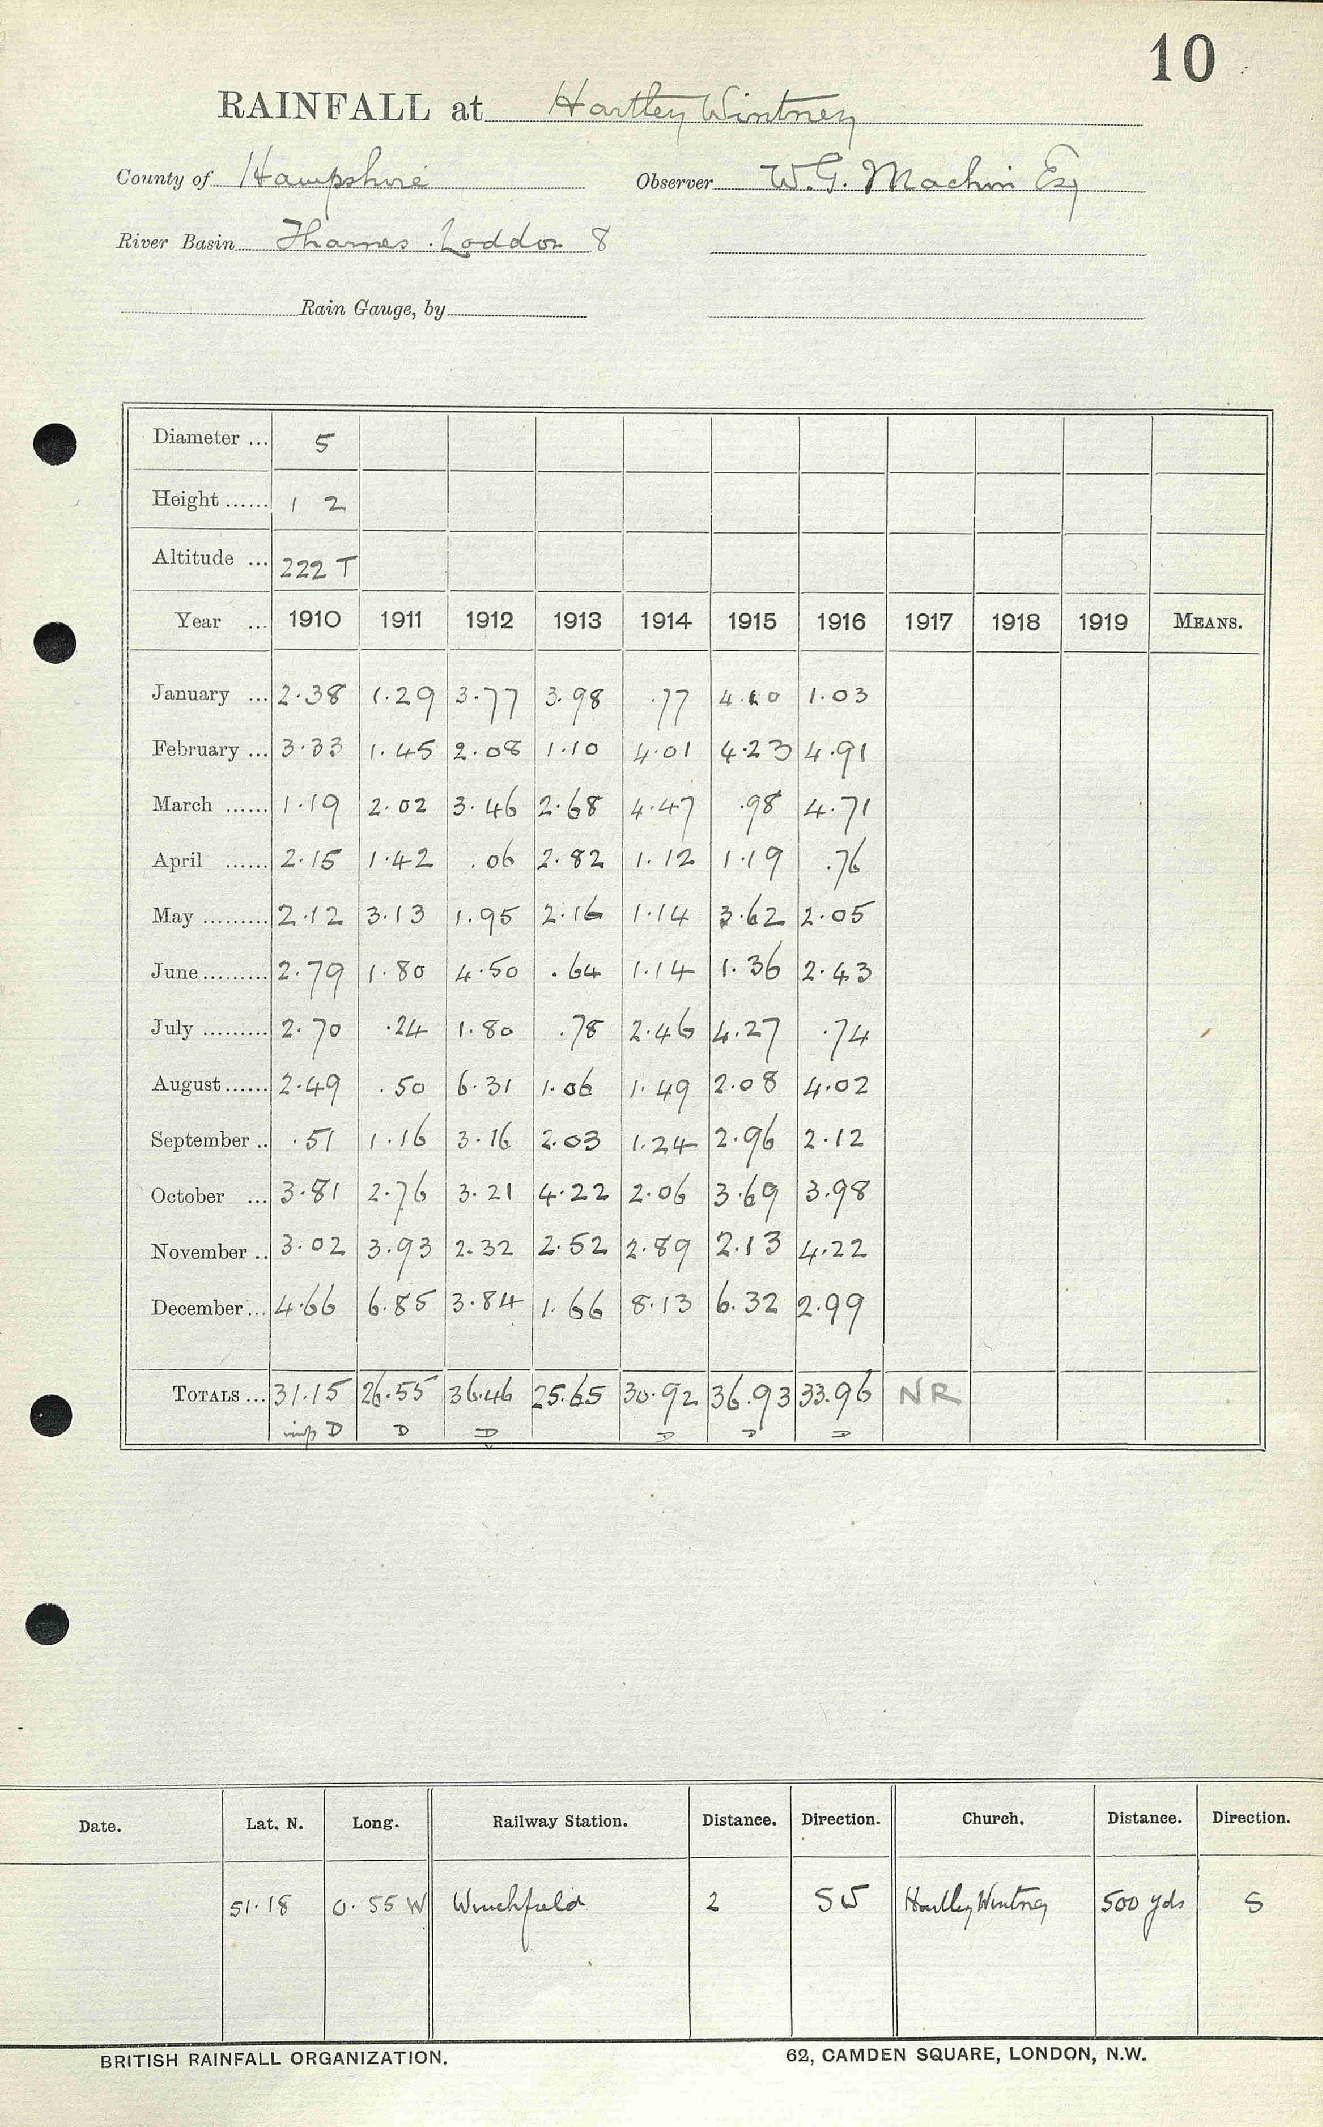 10
RAINFALL at Hartley Wintney
County of Hampshire Observer W. G. Machin Esq
River Basin Thames. Loddon 8
Rain Gauge, by
Diameter ... 5
Height ...... 1 2
Altitude ... 222 T
Year ... 1910 1911 1912 1913 1914 1915 1916 1917 1918 1919 MEANS.
January ... 2.38 1.29 3.77 3.98 .77 4.10 1.03
February ... 3.33 1.45 2.08 1.10 4.01 4.23 4.91
March ...... 1.19 2.02 3.46 2.68 4.47 .98 4.71
April ...... 2.15 1.42 .06 2.82 1.12 1.19 .76
May ......... 2.12 3.13 1.95 2.16 1.14 3.62 2.05
June ......... 2.79 1.80 4.50 .64 1.14 1.36 2.43
July ......... 2.70 .24 1.80 .78 2.46 4.27 .74
August ...... 2.49 .50 6.31 1.06 1.49 2.08 4.02
September .. .51 1.16 3.16 2.03 1.24 2.96 2.12
October ... 3.81 2.76 3.21 4.22 2.06 3.69 3.98
November .. 3.02 3.93 2.32 2.52 2.89 2.13 4.22
December ... 4.66 6.85 3.84 1.66 8.13 6.32 2.99
TOTALS ... 31.15 26.55 36.46 25.65 30.92 36.93 33.96 NR
D D D D D D
Date. Lat. N. Long. Railway Station. Distance. Direction. Church. Distance. Direction.
51.18 0.55 W Winchfield 2 SW Hartley Wintney 500 yds S
BRITISH RAINFALL ORGANIZATION. 62, CAMDEN SQUARE, LONDON, N.W.